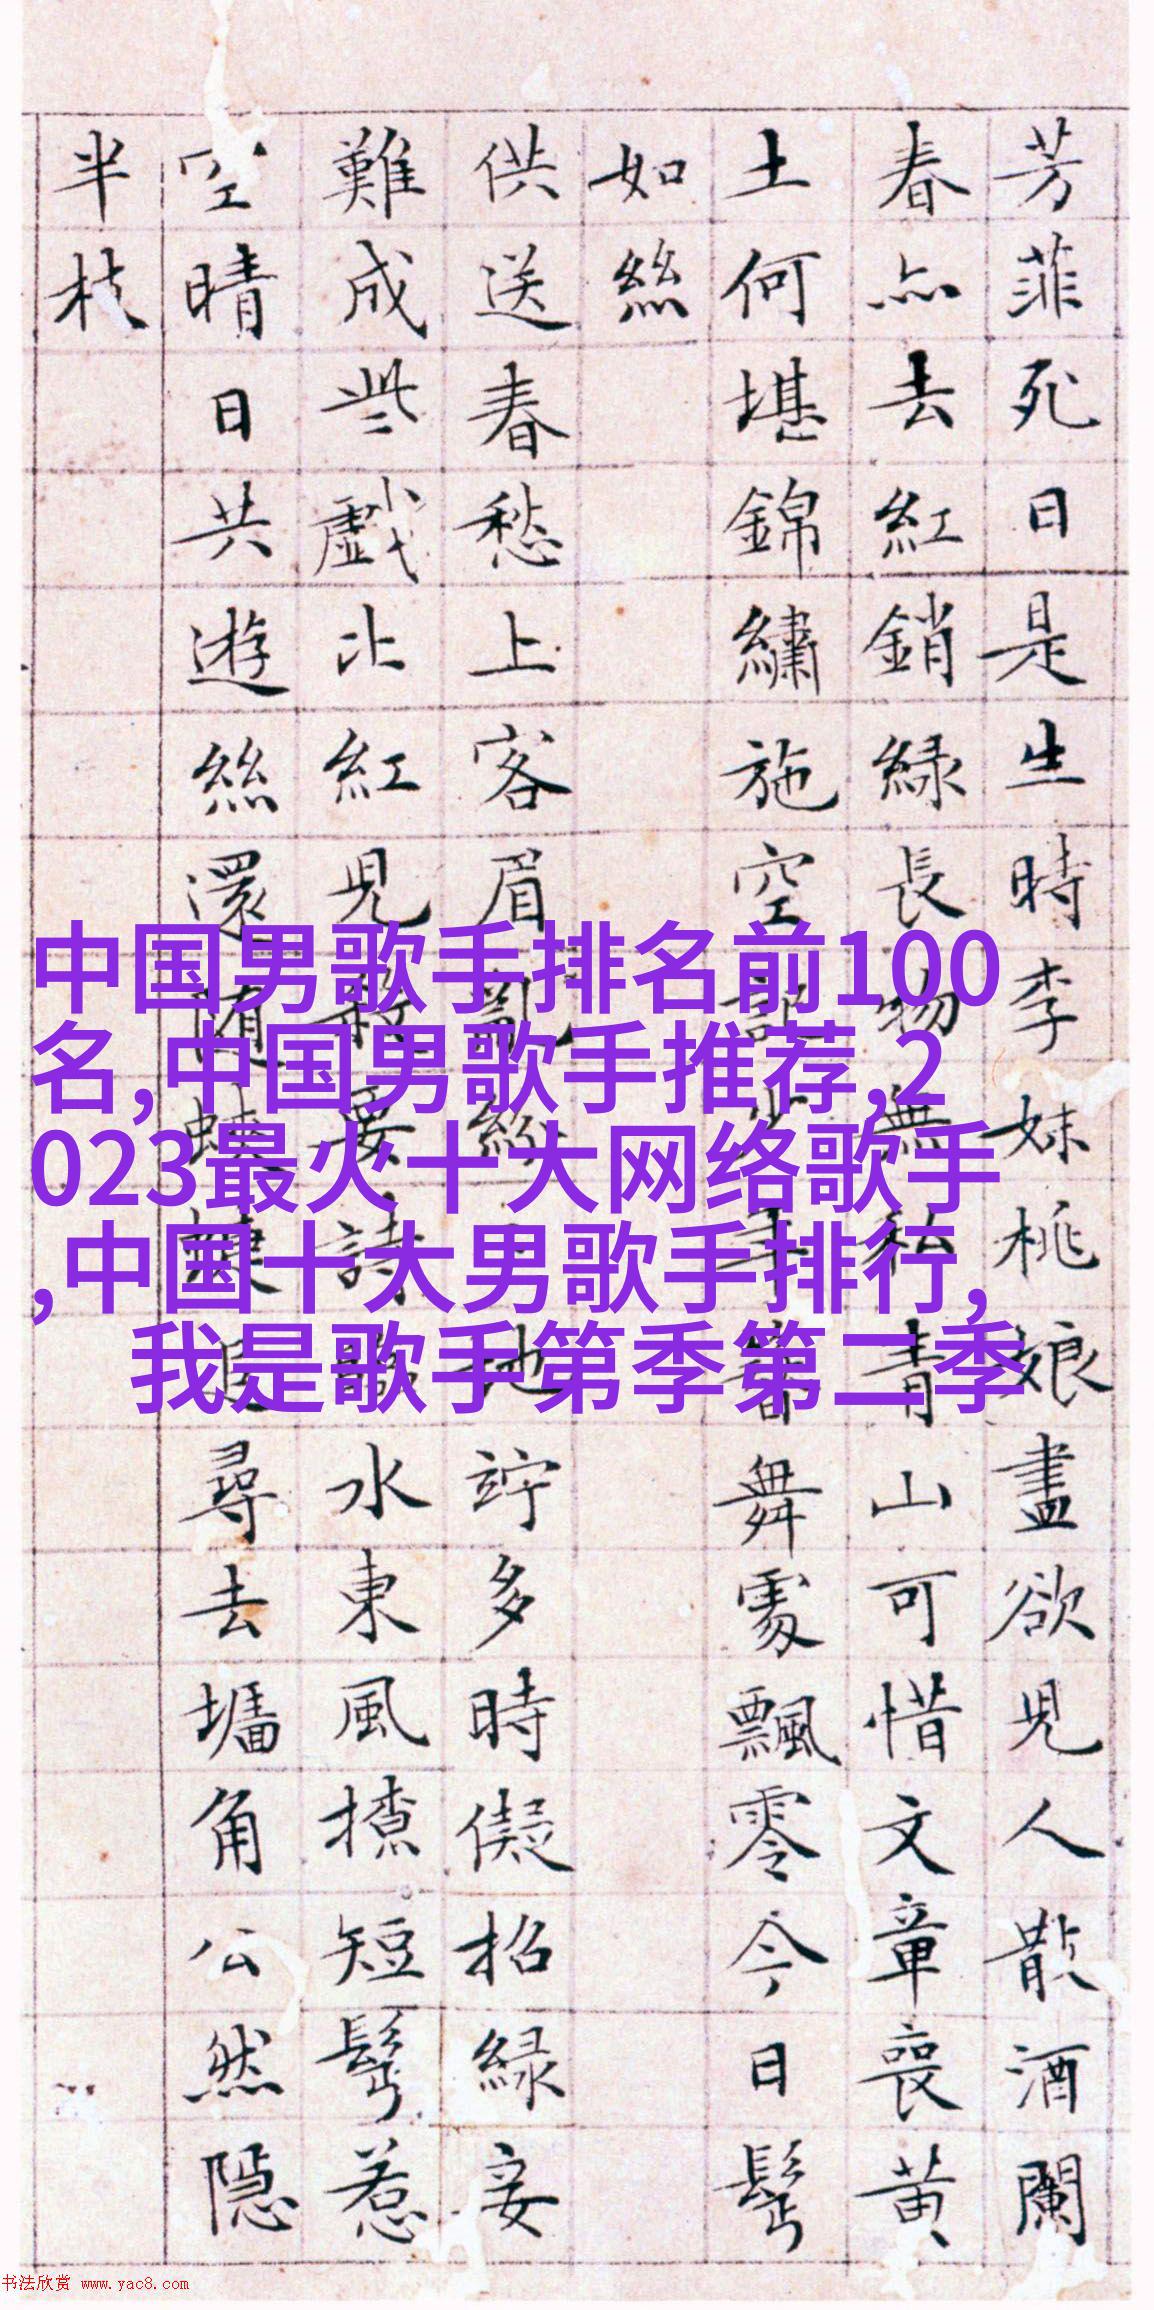 芳菲死日是生時李妹桃娘盡欲兒人散酒闌
春亦去紅銷綠長物無私青山可惜文章喪黃
土何堪錦繡施空記少年簪舞處飄零今日鬢
如絲
供送春愁上客眉亂紛々地竚多時儗招綠妾
難成些戲比紅兒要詩水東風撩短鬢惹
空晴日共遊絲還隨蛺蝶追尋去墻角公然隱
半枝
中国男歌手排名前100
名,中国男歌手推荐,2
023最火十大网络歌手
,中国十大男歌手排行,
我是歌手第季第二季
书法欣赏 www.yac8.com